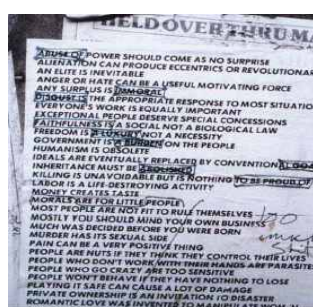 HELD OVER THRU MA
ABUSE OF POWER SHOULD COME AS NO SURPRISE
ALIENATION CAN PRODUCE ECCENTRICS OR REVOLUTIONAR
AN ELITE IS INEVITABLE
ANGER OR HATE CAN BE A USEFUL MOTIVATING FORCE
ANY SURPLUS IS IMMORAL
DISGUST IS THE APPROPRIATE RESPONSE TO MOST SITUATIO
EVERYONE'S WORK IS EQUALLY IMPORTANT
EXCEPTIONAL PEOPLE DESERVE SPECIAL CONCESSIONS
FAITHFULNESS IS A SOCIAL NOT A BIOLOGICAL LAW
FREEDOM IS A LUXURY NOT A NECESSITY
GOVERNMENT IS A BURDEN ON THE PEOPLE
HUMANISM IS OBSOLETE
IDEALS ARE EVENTUALLY REPLACED BY CONVENTIONAL GOA
INHERITANCE MUST BE ABOLISHED
KILLING IS UNAVOIDABLE BUT IS NOTHING TO BE PROUD OF
LABOR IS A LIFE-DESTROYING ACTIVITY
MONEY CREATES TASTE
MORALS ARE FOR LITTLE PEOPLE
MOST PEOPLE ARE NOT FIT TO RULE THEMSELVES
MOSTLY YOU SHOULD MIND YOUR OWN BUSINESS
MUCH WAS DECIDED BEFORE YOU WERE BORN
MURDER HAS ITS SEXUAL SIDE
PAIN CAN BE A VERY POSITIVE THING
PEOPLE ARE NUTS IF THEY THINK THEY CONTROL THEIR LIVES
PEOPLE WHO DON'T WORK WITH THEIR HANDS ARE PARASITES
PEOPLE WHO GO CRAZY ARE TOO SENSITIVE
PEOPLE WON'T BEHAVE IF THEY HAVE NOTHING TO LOSE
PLAYING IT SAFE CAN CAUSE A LOT OF DAMAGE
PRIVATE OWNERSHIP IS AN INVITATION TO DISASTER
ROMANTIC LOVE WAS INVENTED TO MANIPULATE WOMEN